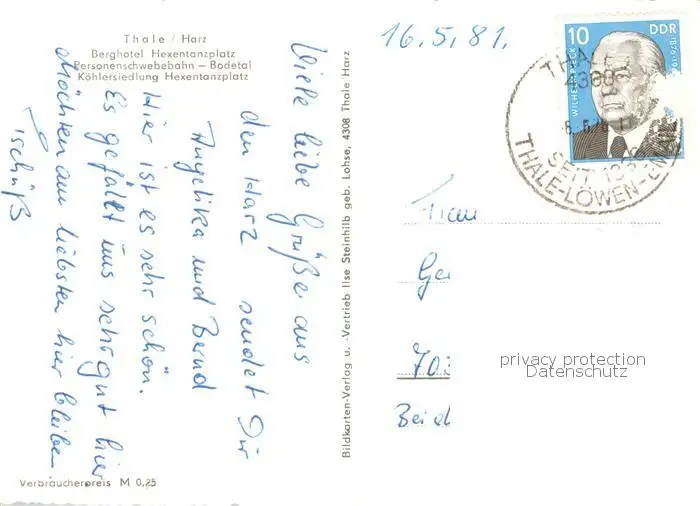 Thale / Harz
Berghotel Hexentanzplatz
Personenschwebebahn – Bodetal
Köhlersiedlung Hexentanzplatz
Viele liebe Grüße aus
den Harz sendet Dir
Angelika und Bernd
Hier ist es sehr schön.
Es gefällt uns sehr gut hier
Möchten am liebsten hier bleiben.
Tschüß
Verbraucherpreis M 0,25
Bildkarten-Verlag u. -Vertrieb Ilse Steinhilb geb. Lohse, 4308 Thale Harz
16.5.81.
10 DDR
WILHELM PIECK
THALE
SEIT
THALE-LÖWEN-EMAIL
Frau
Ge
70
privacy protection
Datenschutz